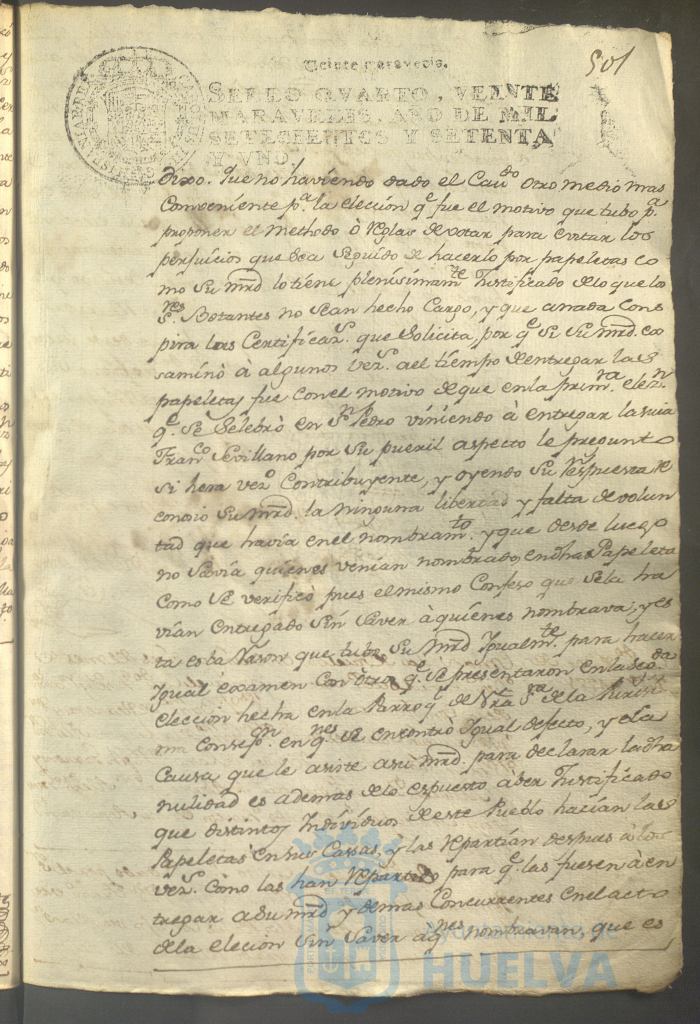 Veinte maravedis.
501
SELLO QVARTO, VEINTE
MARAVEDIS, AÑO DE MIL
SETECIENTOS Y SETENTA
Y VNO.
Dixo. Que no haviendo dado el Cavdo otro medio mas
Combeniente pa la eleccion qe fue el motivo que tubo pa
proponer el Methodo ò Reglas de votar para evitar los
perjuicios que sea seguido de hacerlo por papeletas co
mo su mrd lo tiene plenisimamte Justificado de lo que lo
Sres Botantes no sean hecho Cargo, y que annada Cons
pira las Certificazs. que Solicita, por qe si su mrd. ex
saminò à algunos vezs. ael tiempo de entregar las
papeletas fue con el motivo de que en la primra elezn
qe. se Selebrò en Sn Pedro viniendo à entregar la suia
Franco Sevillano por su pueril aspecto le pregunto
si hera vezo Contribuyente, y oyendo su respuesta re
conoio su mrd. la ninguna libertad y falta de volun
tad que havia en el nombramto. y que desde luego
no Savia quienes venian nombrados en dhas Papeleta
como se verificò pues el mismo Confeso que se la ha
vian entregado sin saver à quienes nombrava; y es
ta es la Rason que tubo su mrd Igualmte. para hacer
Igual examen con otros qe. se presentaron en la segda
eleccion hecha en la Parroqa de Nra Sra de la Purisi
ma Consepon. en qnes se encontrò Igual defecto, y la
Causa que le asiste a su mrd. para declarar la dha
nulidad es ademas de lo espuesto aver Justificado
que distintos Individuos de este Pueblo hacian las
Papeletas en sus Cassas, y las Repartian despues à los
vezs. como las han Repartido para qe las fuesen à en
tregar a su mrd y demas Concurrentes en el acto
de la elecion sin saver aqnes nombravan, que es
Ayuntamiento de
HUELVA